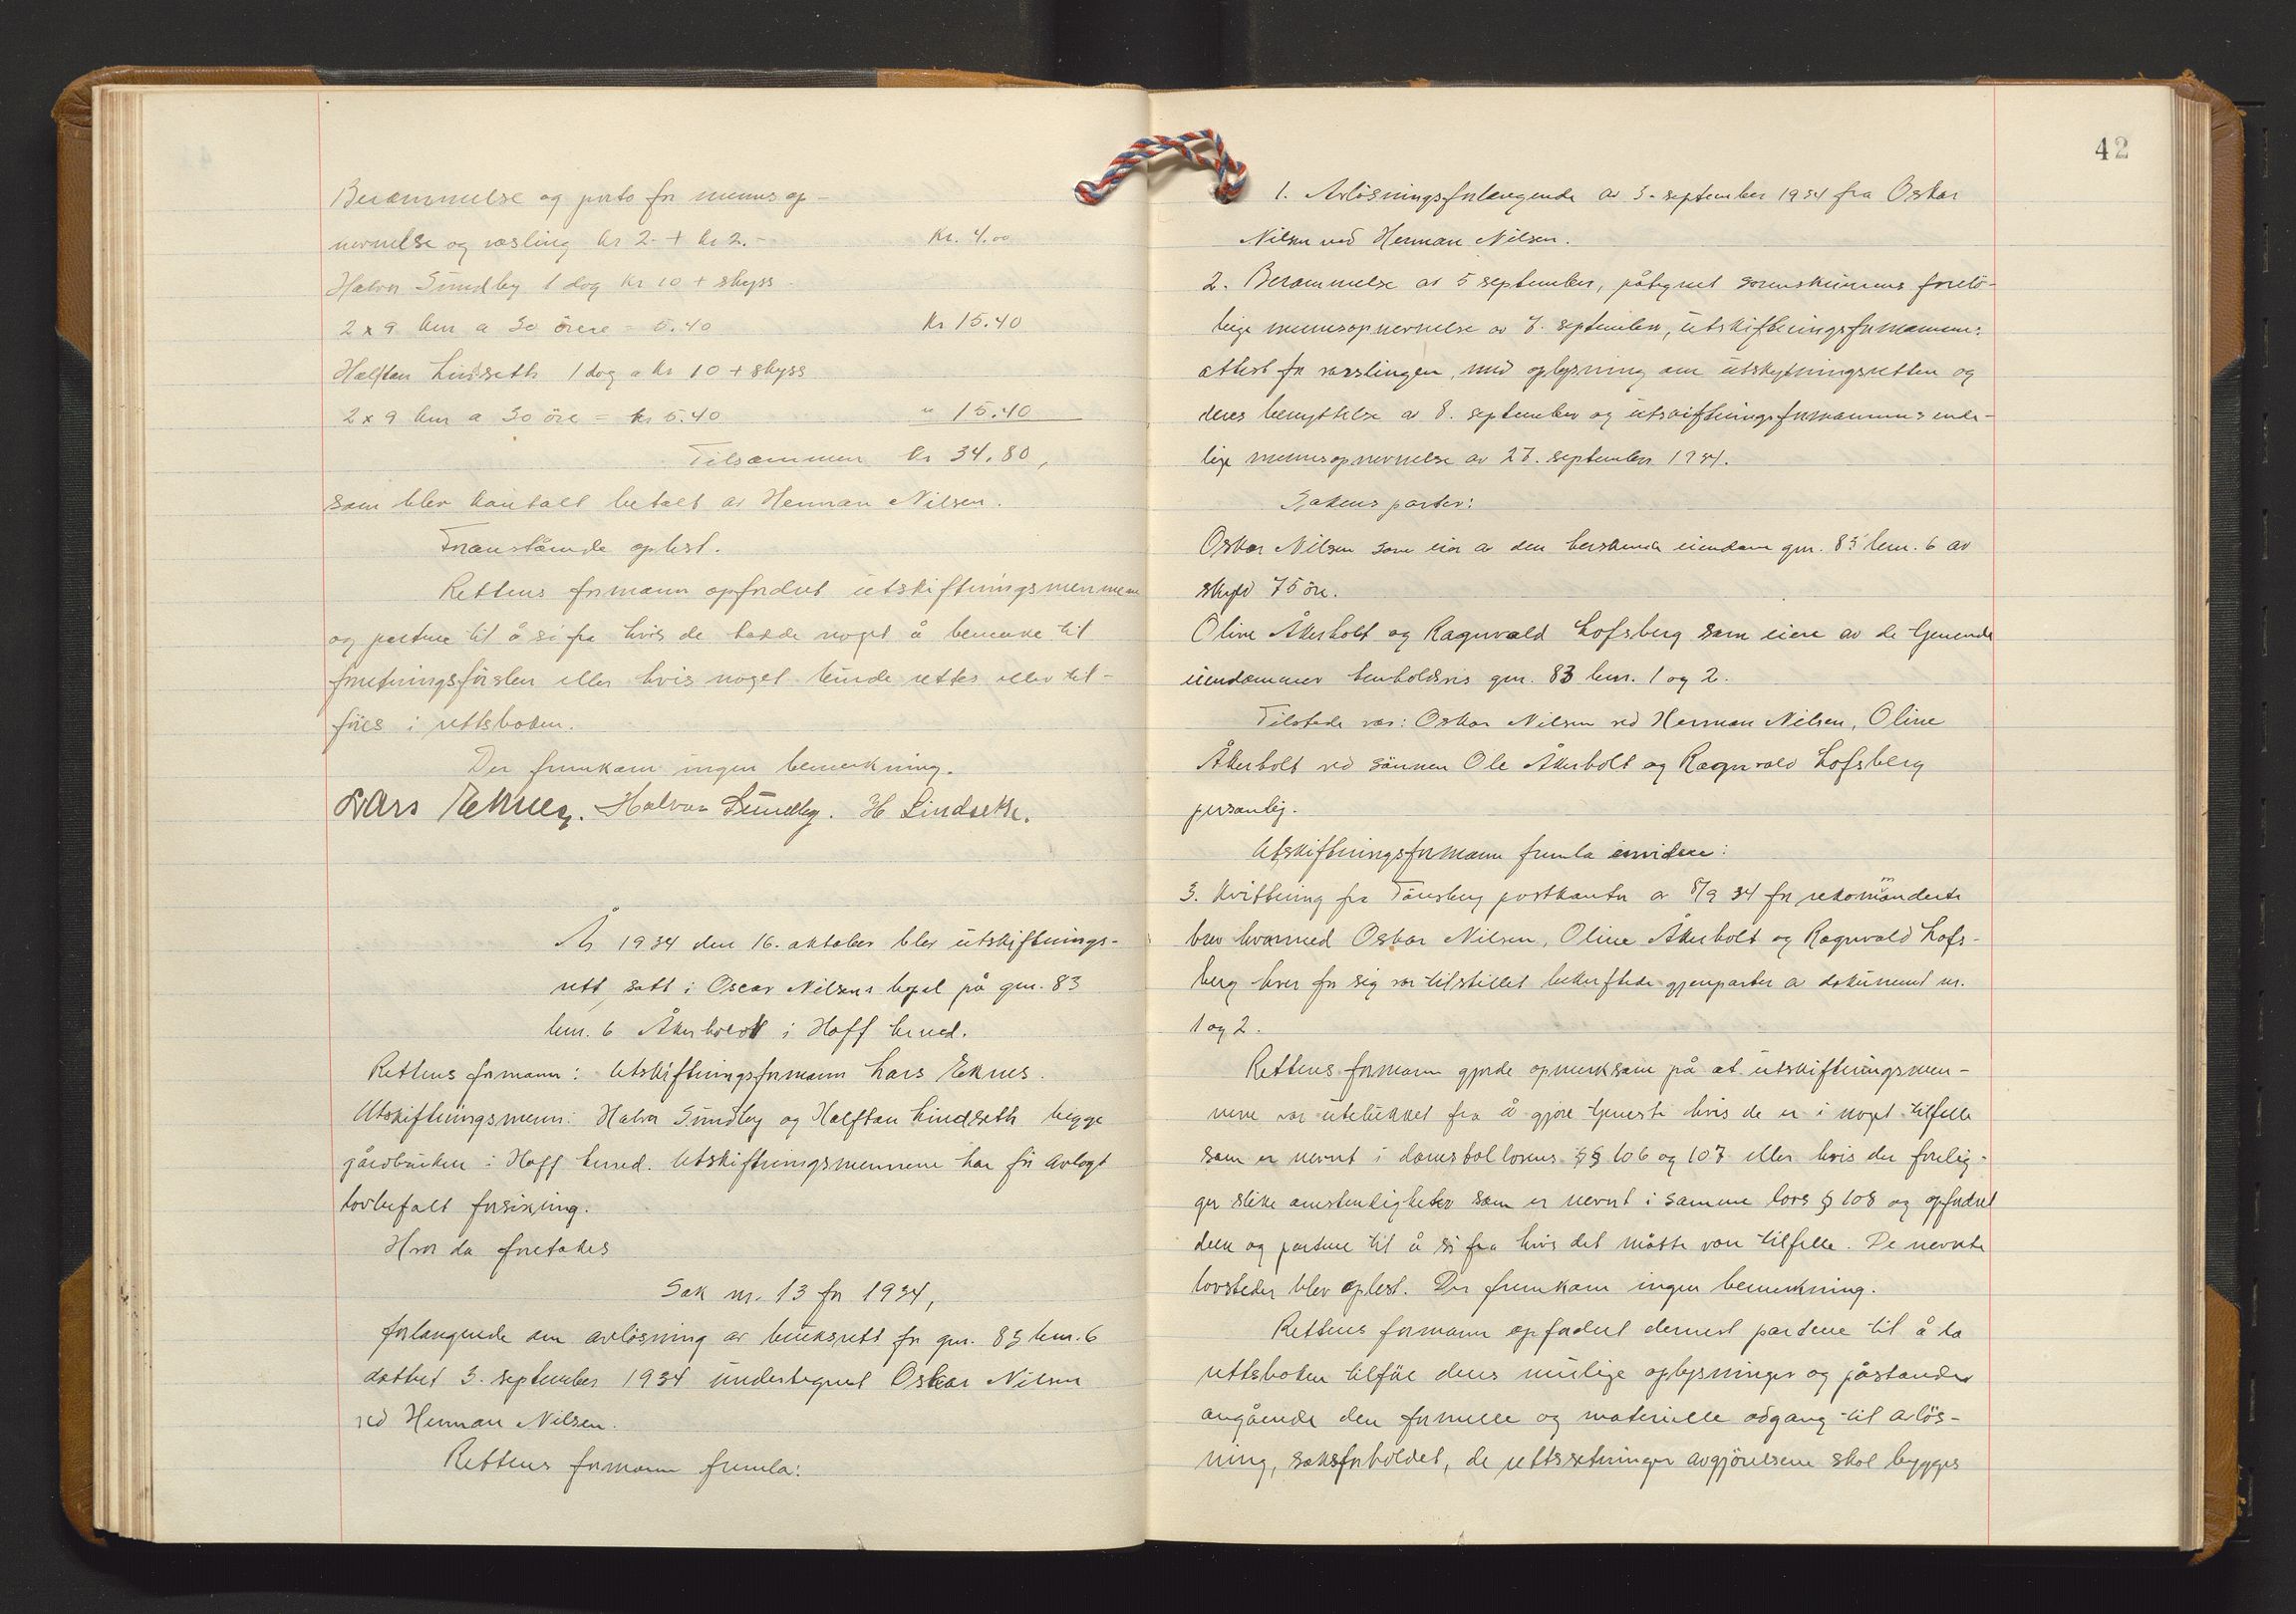 Berammelse og porto for mennsop-
nevnelse og varsling kr 2.- + kr 2.- Kr. 4.00
Halvor Sundby 1 dag kr 10 + skyss
2 x 9 km a 30 øre = 5.40 Kr 15.40
Halfdan Lindseth 1 dag a kr 10 + skyss
2 x 9 km a 30 öre = kr 5.40 " 15.40
Tilsammen kr 34.80,
som blev kontalt betalt av Herman Nilsen.
Foranstående oplest.
Rettens formann opfordret utskiftningsmennene
og partene til å si fra hvis de hadde noget å bemerke til
forretningsførslen eller hvis noget burde rettes eller til-
føies i rettsboken.
Der fremkom ingen bemerkning.
Lars Eknes. Halvor Sundby. H Lindseth.
År 1934 den 16. oktober blev utskiftnings-
rett satt i Oscar Nilsens bopel på gnr. 83
bnr. 6 Åkerholdt i Hoff herred.
Rettens formann: Utskiftningsformann Lars Eknes.
Utskiftningsmenn: Halvor Sundby og Halfdan Lindseth begge
gårdbruker i Hoff herred. Utskiftningsmennene har för avlagt
lovbefalt forsikring.
Hvor da foretokes
Sak nr. 13 for 1934,
forlangende om avlösning av bruksrett for gnr. 83 bnr. 6
dattert 3. september 1934 undertegnet Oskar Nilsen
ved Herman Nilsen.
Rettens formann fremla:
42
1. Avlösningsforlangende av 3. september 1934 fra Oskar
Nilsen ved Herman Nilsen.
2. Berammelse av 5 september, påtegnet sorenskriverens forelö-
bige mennsopnevnelse av 7. september, utskiftningsformannens
attest for varslingen, med oplysning om utskytningsretten og
deres benyttelse av 8. september og utskiftningsformannens ende-
lige mennsopnevnelse av 27. september 1934.
Sakens parter:
Oskar Nilsen som eier av den herskende eiendom gnr. 83 bnr. 6 av
skyld 75 öre.
Oline Åkerholt og Ragnvald Lofsberg som eiere av de tjenende
eiendommer henholdsvis gnr. 83 bnr. 1 og 2.
Tilstede var: Oskar Nilsen ved Herman Nilsen, Oline
Åkerholt ved sönnen Ole Åkerholt og Ragnvald Lofsberg
personlig.
Utskiftningsformann fremla envidere:
3. Kvittering fra Tönsberg postkontor av 8/9 34 for rekommanderte
brev hvormed Oskar Nilsen, Oline Åkerholt og Ragnvald Lofs-
berg hver for sig var tilstillet bekreftede gjenparter av dokument nr.
1 og 2.
Rettens formann gjorde opmerksom på at utskiftningsmen-
nene var utelukket fra å gjøre tjeneste hvis de er i noget tilfelle
som er nevnt i domstollovens §§ 106 og 107 eller hvis der forelig-
ger slike omstendigheter som er nevnt i samme lovs § 108 og opfordret
dem og partene til å si fra hvis det måtte være tilfelle. De nevnte
lovsteder blev oplest. Der fremkom ingen bemerkning.
Rettens formann opfordret dernest partene til å la
rettsboken tilföie deres mulige oplysninger og påstander
angående den formelle og materielle adgang til avlös-
ning, saksforholdet, de rettssetninger avgjörelsene skal bygges